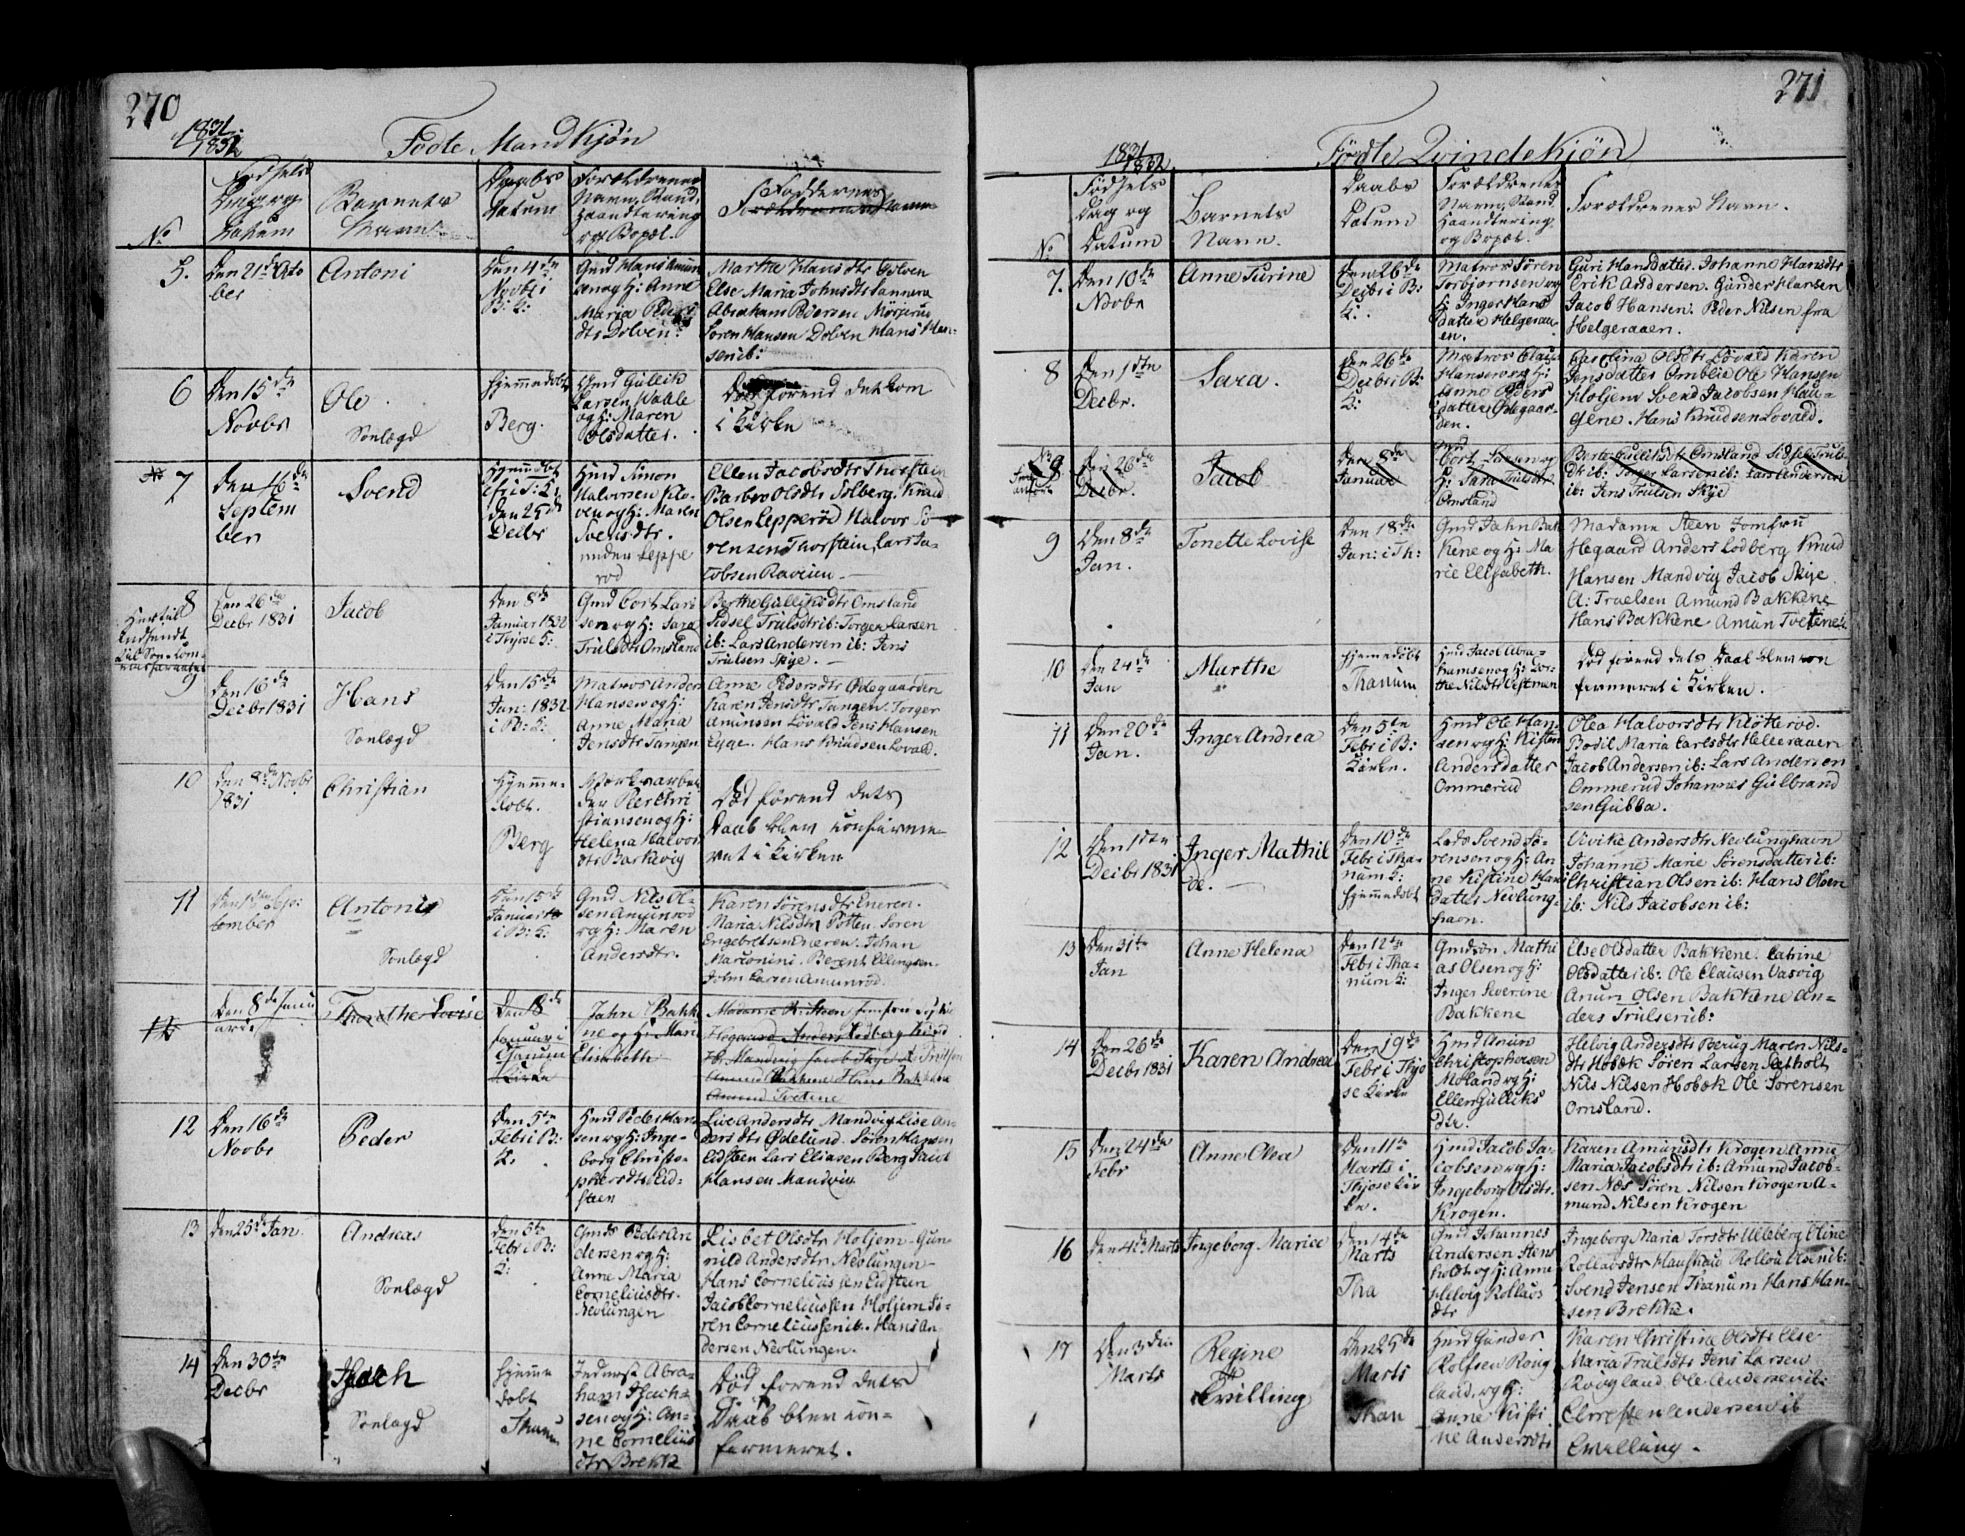 270
1831
1832
Födte Mandkjön
No
Födsels Dag og Datum
Barnets Navn
Daabs Datum
Forældrenes Navn, Stand, Haandtering og Bopæl.
Faddernes Navne
5.
Den 21de Octo
ber
Antoni
Den 4de
Novbr i
B: K:
Gmd Hans Amun
sen og H: Anne
Maria Peders
dtr Dolven.
Marthe Hansdtr Dolven
Else Maria Johnsdtr
Abraham Pedersen
Sören Hansen Dolven Hans Han-
sen ib:
6
Den 15de
Novbr
Ole
Sonlægd
Hjemmedöbt
Berg.
Hmd Gullik
Larsen
og H: Maren
Olsdatter.
Död forend det kom
i Kirke
7
Den 16de
Septem
ber
Svend
Hjemdöbt
Den 25de
Decbr
Hmd Simon
Halvorsen Klo-
ven og H: Maren
Svensdtr.
under Leppe
rod
Ellen Jacobsdtr Thorstein
Barbro Olsdtr Solberg. Knud
Olsen Lepperöd Halvor Sö-
rensen Thorstein, Lars Ja-
cobsen
8
Den 26de
Decbr 1831
Jacob
Den 8de
Januar 1832
i Thjose K:
Gmd Cort Lar
sen og H: Sara
Trulsdtr Omsland
Berthe Gulliksdtr Omsland
Sidsel Trulsdtr ib: Torger Larsen
ib: Lars Andersen ib: Jens
Trulsen Skije.
9
Den 16de
Decbr 1831
Hans
Sonlægd
Den 15de
Jan: 1832
i B: K:
Matros Anders
Hansen og H:
Anne Maria
Jensdtr Tangen
Anne Pedersdtr Ødegaarden
Karen Jensdtr Tangen. Torger
Amunsen Lövald Jens Hansen
Hans Knudsen Lovald.
10
Den 8de Novbr
1831
Christian
Hjemme-
döbt.
Berg
Værksarbei
der Per Chri
stiansen og H:
Helena Halvors
dtr Barkevig
Död förend dets
Daab blev confirme-
ret i Kirken
11
Antoni
Sonlægd
Den 15de
Januar
i B: K:
Gmd Nils Ol-
sen Amunrod
og H: Maren
Andersdtr.
Karen Sörensdtr Eneren.
Maria Nilsdtr Sören
Engebretsen Eneren. Johan
Berent Ellingsen.
John Larsen Amunrod.
12
Den 8de Janu
ar
Thorethe Lovise
Den 18de
Januar i
Tanum
Kirke
Jahn Bakk
ne og H: Mari
Elisabeth
Madame Steen Jomfru
Hegaard Anders Lodberg Knud
H. Mandvig Jacob Skije A: Trulsen
Amund Bakkene Hans Bakkene
Amund Tvetene
12
Den 16de
Novbr
Peder
Den 5te
Febr i B:
K.
Hmd Peder Han
sen og H: Inge-
borg Christo-
phersdtr Eid-
sten
Live Andersdtr Mandvig Lise An
dersdtr Ødelund. Sören Hansen
Eidsten Lars Eliasen Berg Jacob
Hansen Mandvig
13
Den 25de Jan
Andreas
Sonlægd
Den 5te
Febr i B:
K:
Gmd Peder An
dersen og H:
Anne Maria
Corneliusdtr.
Nevlungen
Lisbet Olsdtr Holjem. Gun-
nild Andersdtr Nevlungen
Hans Corneliussen Eidsten
Jacob Corneliussen Holjem Sö-
ren Corneliussen ib. Hans An-
dersen Nevlungen.
14
Den 30te
Decbr
Isach
Sonlægd
Hjemme
döbt
Thanum
Inderst Abra-
ham Isach-
sen og H: An-
ne Cornelius
dtr Brekke
Död forend dets
Daab blev con-
fermeret.
271
1831
1832
Födte Qvindekjön
No
Födsels Dag og Datum
Barnets Navn.
Daabs Datum
Forældrenes Navn, Stand Haandtering og Bopæl.
Forældrenes Navn.
7.
Den 10de
Novbr
Anne Turine
Den 26de
Decbr i B:
K:
Matros Sören
Torbjörnsen og
H: Inger Hans
datter Helgeraa-
en.
Guri Hansdatter. Johanne Hansdtr
Erik Andersen. Gunder Hansen
Jacob Hansen. Peder Nilsen fra
Helgeraaen.
8
Den 1ste
Decbr.
Sara.
Den 26de
Decbr i B:
K:
Matros Claus
Hansen og H:
Anne Peders
datter Ødegaar-
den.
Karolina Olsdtr Lövald Karen
Jensdatter Omblie Ole Hansen
Holjem Svend Jacobsen Hau-
gene. Hans Knudsen Lovald.
9
Den 26de
Decbr.
Jacob
Den 8de
Januar
Gmd
Cort Larsen og
H: Sara Trulsdtr
Omsland
Berte Gulliksdtr Omsland Sidsel Truls-
dtr ib: Torger Larsen ib: Lars Andersen
ib: Jens Trulsen Skije
9
Den 8de
Jan.
Tonette Lovise
Den 18de
Jan: i Th:
Gmd Jahn Bak
kene og H: Ma
rie Elisabeth.
Madame Steen Jomfru
Hegaard Anders Lodberg Knud
Hansen Mandvig Jacob Skije
A: Truelsen Amund Bakkene
Hans Bakkene Amun Tvetene
10
Den 24de
Jan
Marthe
Hjemmedöbt
Thanum
Hmd Jacob Abra-
hamsen og H: Dor-
the Nilsdtr Vestman
Död förend dets Daab blev con
fermeret i Kirken.
11
Den 20de
Jan.
Inger Andrea
Den 5te
Febr i B:
Kirke.
Hmd Ole Han-
sen og H: Kisten
Andersdatter
Ommerud
Olea Halvorsdtr Klötterod.
Bodil Maria Carlsdtr Helleraaen
Jacob Andersen ib: Lars Andersen
Ommerud Johannes Gulbrand
sen Gubba.
12
Den 1ste
Decbr 1831
Inger Mathil
de.
Den 10de
Febr i Tha-
num K:
Hjemmedöbt
Lods Svend Sö-
rensen og H: An
ne Kistine Hans
datter Nevlung-
havn.
Vivike Andersdtr Nevlunghavn
Johanne Marie Sörensdatter ib:
Christian Olsen ib: Hans Olsen
ib: Nils Jacobsen ib:
13
Den 31te
Jan
Anne Helena
Den 12te
Febr i Tha-
num K:
Gmdsön Mathi
as Olsen og H:
Inger Severine
Bakkene
Else Olsdatter Bakkene. Catrine
Olsdatter ib: Ole Clausen Vasvig
Anun Olsen Bakkene An-
ders Trulsen ib:
14
Den 26de
Decbr 1831
Karen Andrea
Den 19de
Febr i Thjo
se Kirke
Hmd Anun
Christophersen
Moland og H:
Ellen Gulliks
dtr.
Helvig Andersdtr Berug Maren Nils-
dtr Hobæk Sören Larsen
Nils Nilsen Hobæk Ole Sörensen
Omsland.
15
Den 24de
Febr
Anne Olea
Den 11te
Marts i
Thjose Kir
ke.
Hmd Jacob Ja-
cobsen og H:
Ingeborg Olsdtr.
Krogen.
Karen Amundsdtr Krogen Anne
Maria Jacobsdtr ib: Amund Jacob-
sen Næs Sören Nilsen Krogen A-
mund Nilsen Krogen
16
Den 4de Marts
Ingeborg Mariee
Den 14de
Marts
Tha
Gmd Johannes
Andersen Stens
holt og H: Anne
Helvig Rollaus
dtr
Ingeborg Maria Torsdtr Ulleberg Eline
Rollausdtr Haushau Rollou Elsen ib:
Svend Jensen Thanum Hans Han-
sen Brekke.
17
Den 3die
Marts
Regine
Tvilling
Den 25de
Marts
Than
Hmd Gunder
Rolfsen Röug
land. og H:
Anne Kisti
ne Andersdtr
Karen Christine Olsdtr Else
Maria Trulsdtr Jens Larsen
Röugland Ole Andersen ib:
Christen Andersen ib
Tvilling.